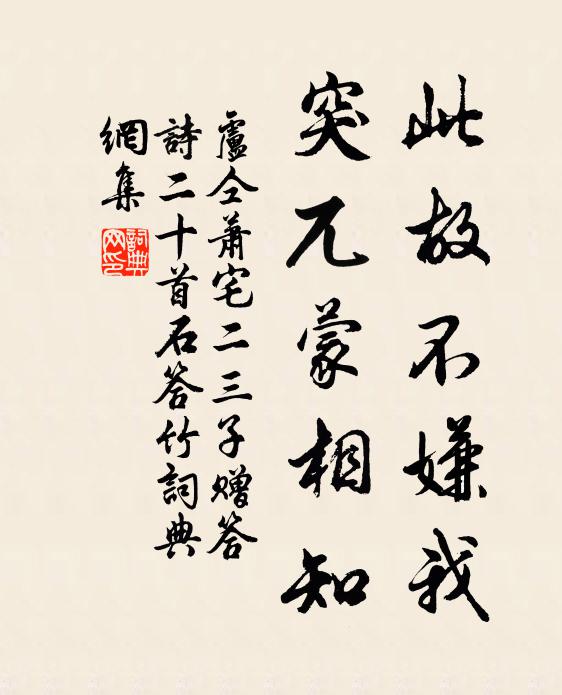 此故不嫌我
突兀蒙相知
盧仝蕭宅二三子贈答
詩二十首石答竹詞典
網集
詞典網印